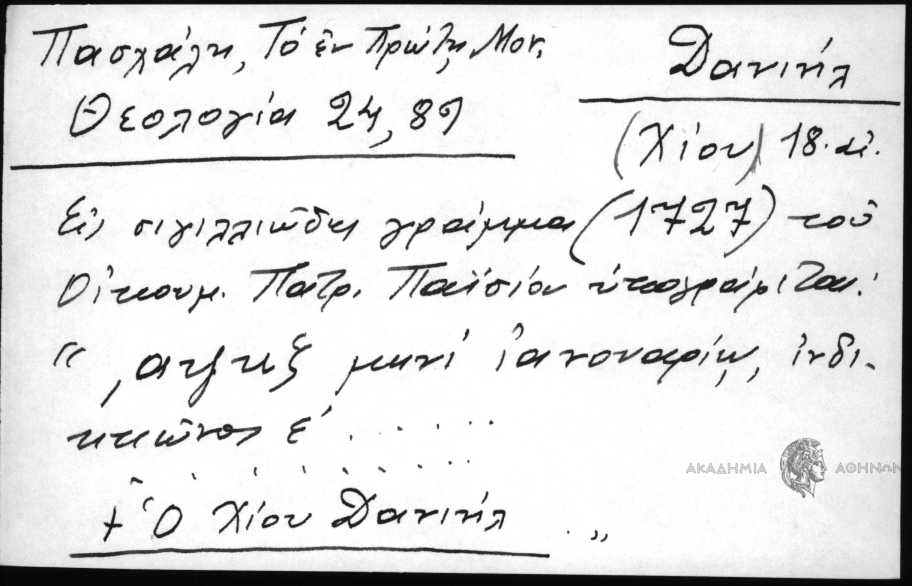 Πασχάλη, Τὸ ἐν Πρώτῃ Μον.
Θεολογία 24, 89
Δανιήλ
(Χίου) 18. αἰ.
Εἰς σιγιλλιῶδες γράμμα (1727) τοῦ
Οἰκουμ. Πατρ. Παϊσίου ὑπογράφεται:
"͵αψκζ μηνὶ ἰανουαρίῳ, ἰνδι-
κτιῶνος ε' . . . . . .
. . . . . . . .
+ Ὁ Χίου Δανιήλ . "
ΑΚΑΔΗΜΙΑ ΑΘΗΝΩΝ